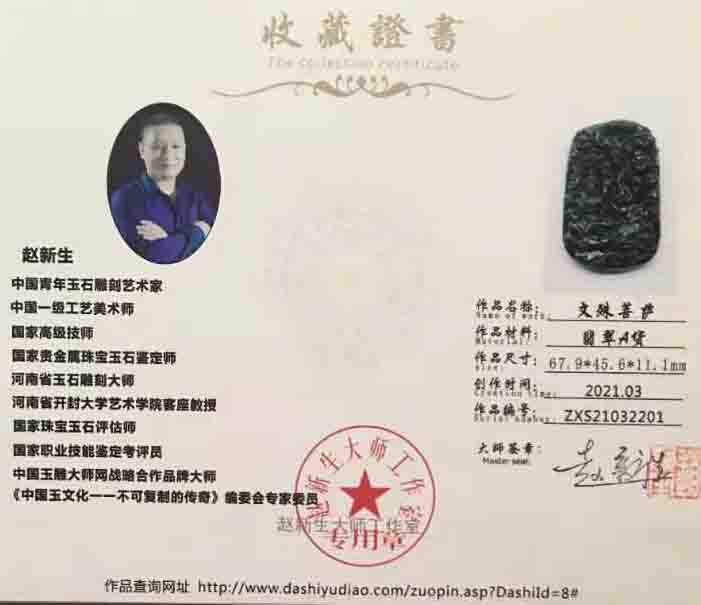 收藏證書
The collection certificate
赵新生
中国青年玉石雕刻艺术家
中国一级工艺美术师
国家高级技师
国家贵金属珠宝玉石鉴定师
河南省玉石雕刻大师
河南省开封大学艺术学院客座教授
国家珠宝玉石评估师
国家职业技能鉴定考评员
中国玉雕大师网战略合作品牌大师
《中国玉文化一一不可复制的传奇》编委会专家委员
作品名称: 文殊菩萨
Name of work:
作品材料: 翡翠A货
Material:
作品尺寸: 67.9*45.6*11.1mm
创作时间: 2021.03
Creation time:
作品编号: ZXS21032201
Serial number:
大师签章:
Master seal:
赵新生
赵新生大师工作室
专用章
赵新生大师工作室
作品查询网址 http://www.dashiyudiao.com/zuopin.asp?DashiId=8#